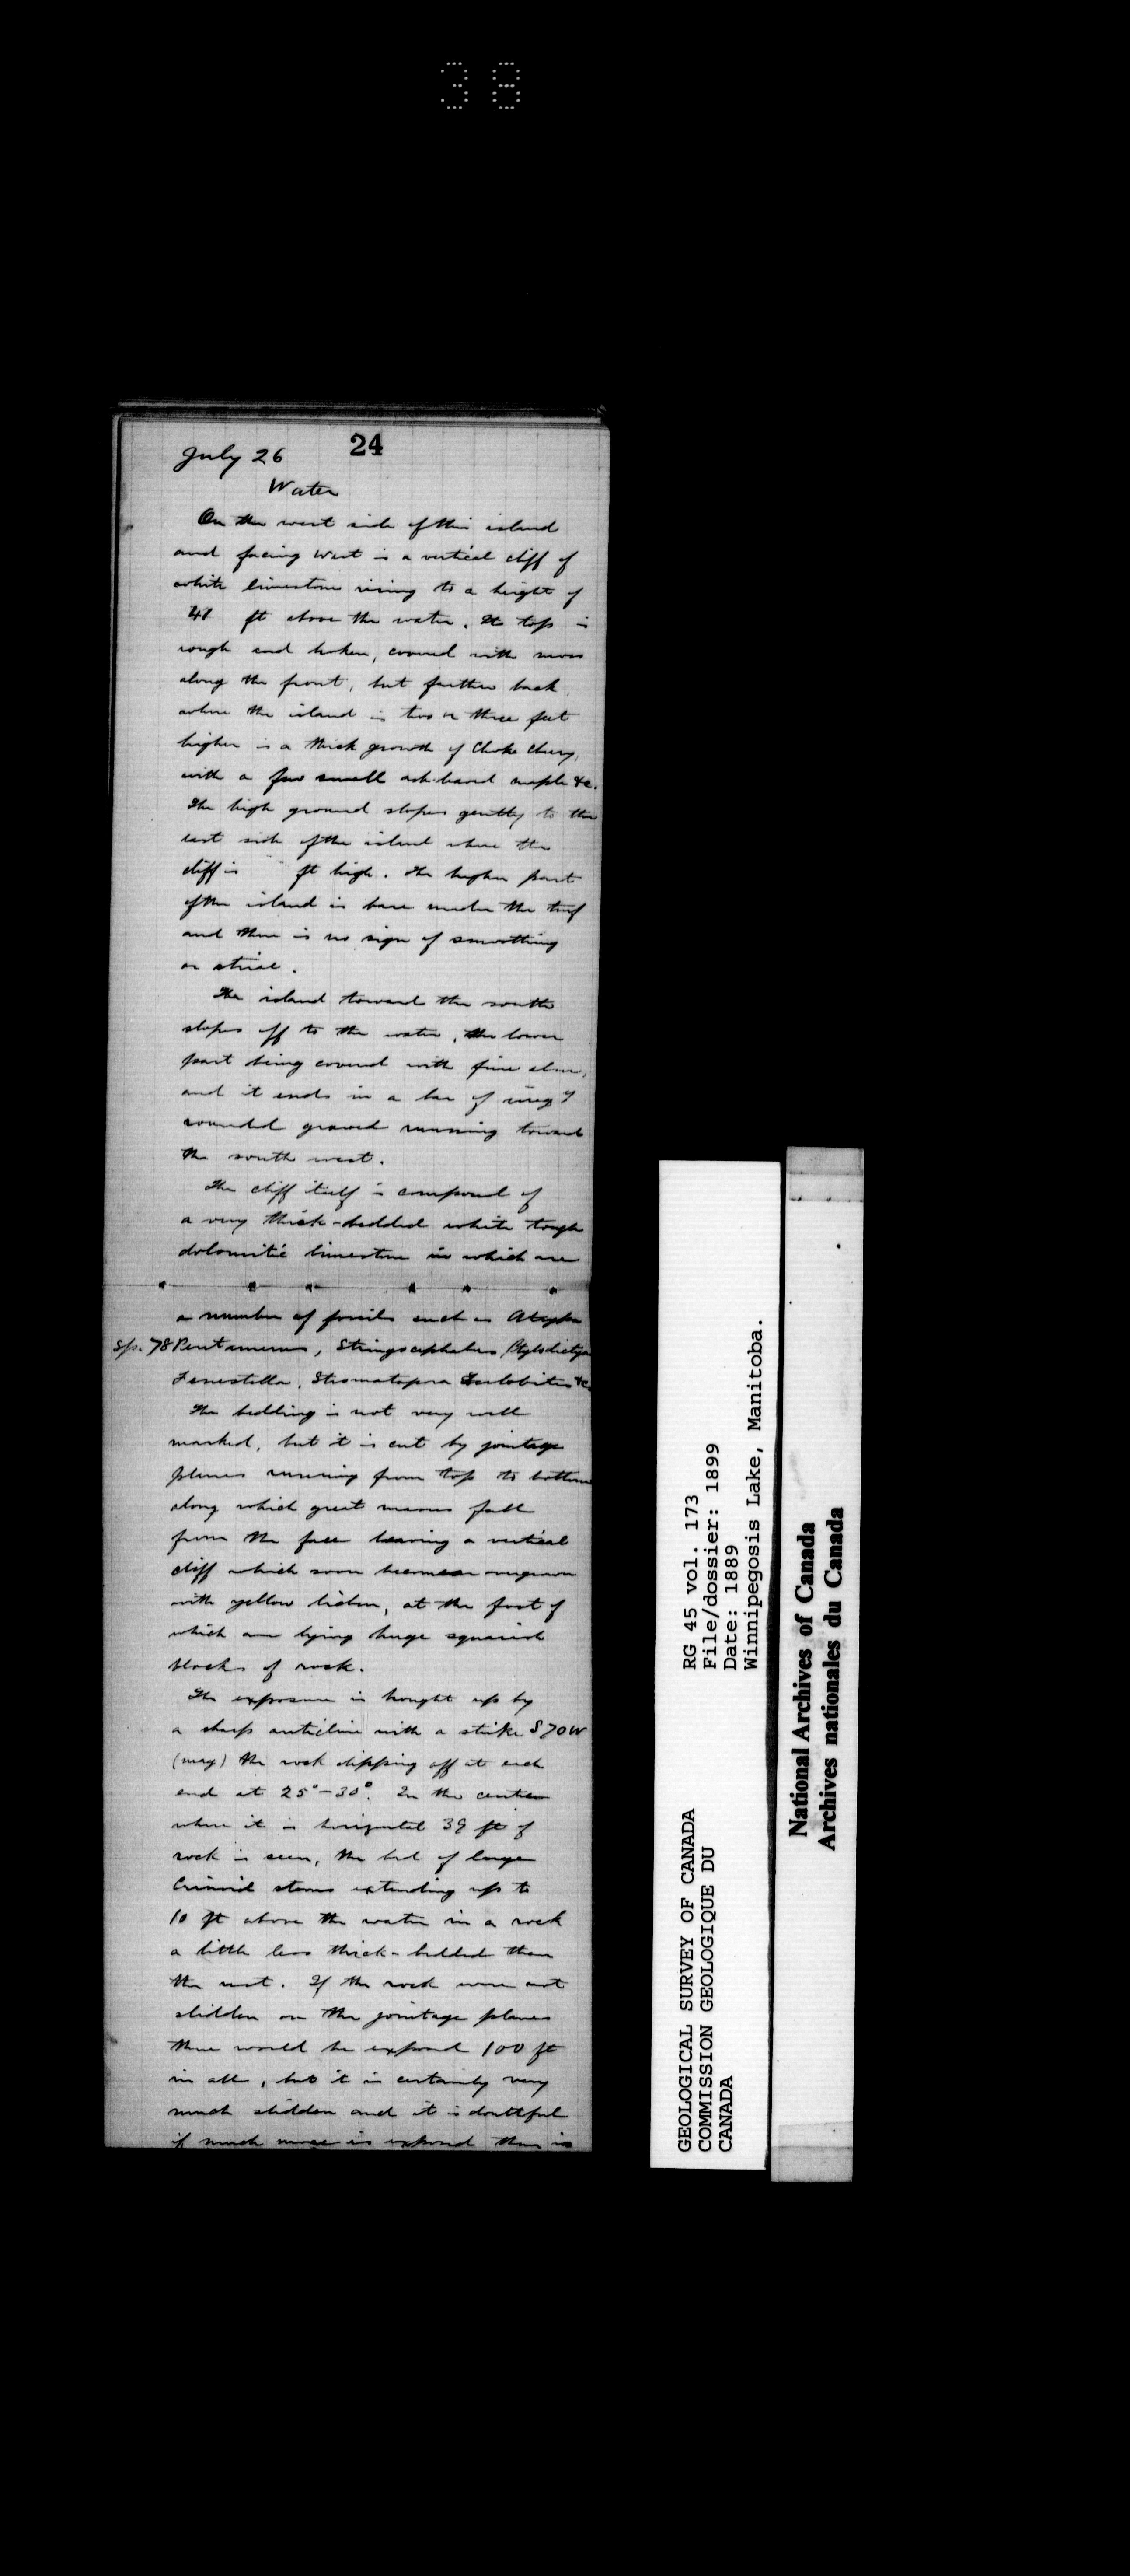 38
24
July 26
Water
On the west side of this island
and facing West is a vertical cliff of
white limestone rising to a height of
41 ft above the water. Its top is
rough and broken, covered with moss
along the front, but farther back
where the island is two or three feet
higher is a thick growth of Choke Cherry,
with a few small ash-leaved maple &c.
The high ground slopes gently to the
east side of the island where the
cliff is ft high. The higher part
of the island is bare under the turf
and there is no sign of smoothing
or striae.
The island toward the south
slopes off to the water, the lower
part being covered with fine elm,
and it ends in a bar of
rounded gravel running toward
the south west.
The cliff itself is composed of
a very thick-bedded white tough
dolomitic limestone in which are
a number of fossils such as Atrypa
Sp. 78 Pentamerus, Stringocephalus, Ptylodictya
Fenestella, Stromatopora &c
The bedding is not very well
marked, but it is cut by jointage
planes running from top to bottom
along which great masses fall
from the face leaving a vertical
cliff which soon becomes overgrown
with yellow lichen, at the foot of
which are lying huge squarish
blocks of rock.
The exposure is brought up by
a sharp anticline with a strike S 70 W
(mag) the rock dipping off at each
end at 25°-30°. In the center
where it is horizontal 39 ft of
rock is seen, the bed of large
Crinoid stems extending up to
10 ft above the water in a rock
a little less thick-bedded than
the rest. If the rock were not
slidden on the jointage planes
there would be exposed 100 ft
in all, but it is certainly very
much slidden and it is doubtful
if much more is exposed than is
GEOLOGICAL SURVEY OF CANADA
COMMISSION GEOLOGIQUE DU
CANADA
RG 45 vol. 173
File/dossier: 1899
Date: 1889
Winnipegosis Lake, Manitoba.
National Archives of Canada
Archives nationales du Canada